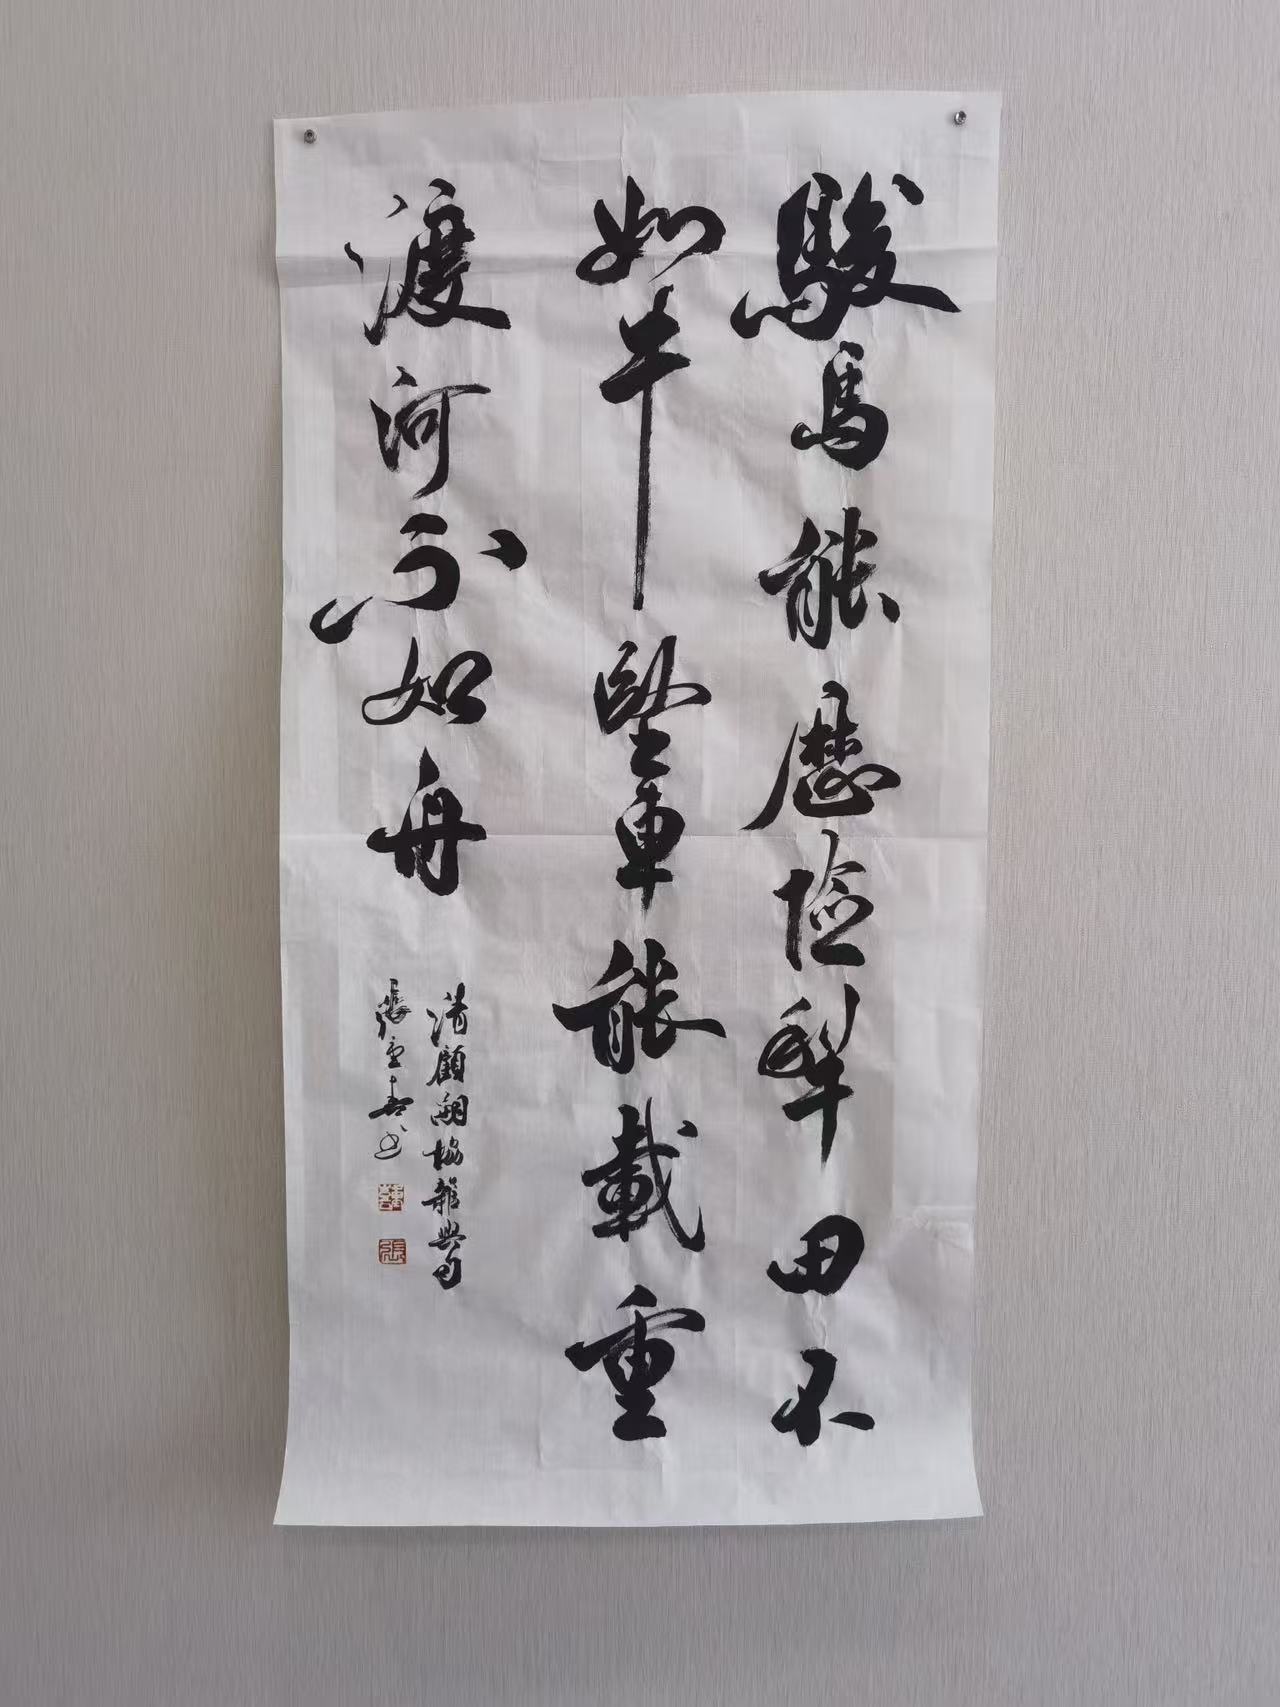 駿馬能歷險犂田不
如牛堅車能載重
渡河不如舟
清顧嗣協雜興句
張重春书
張